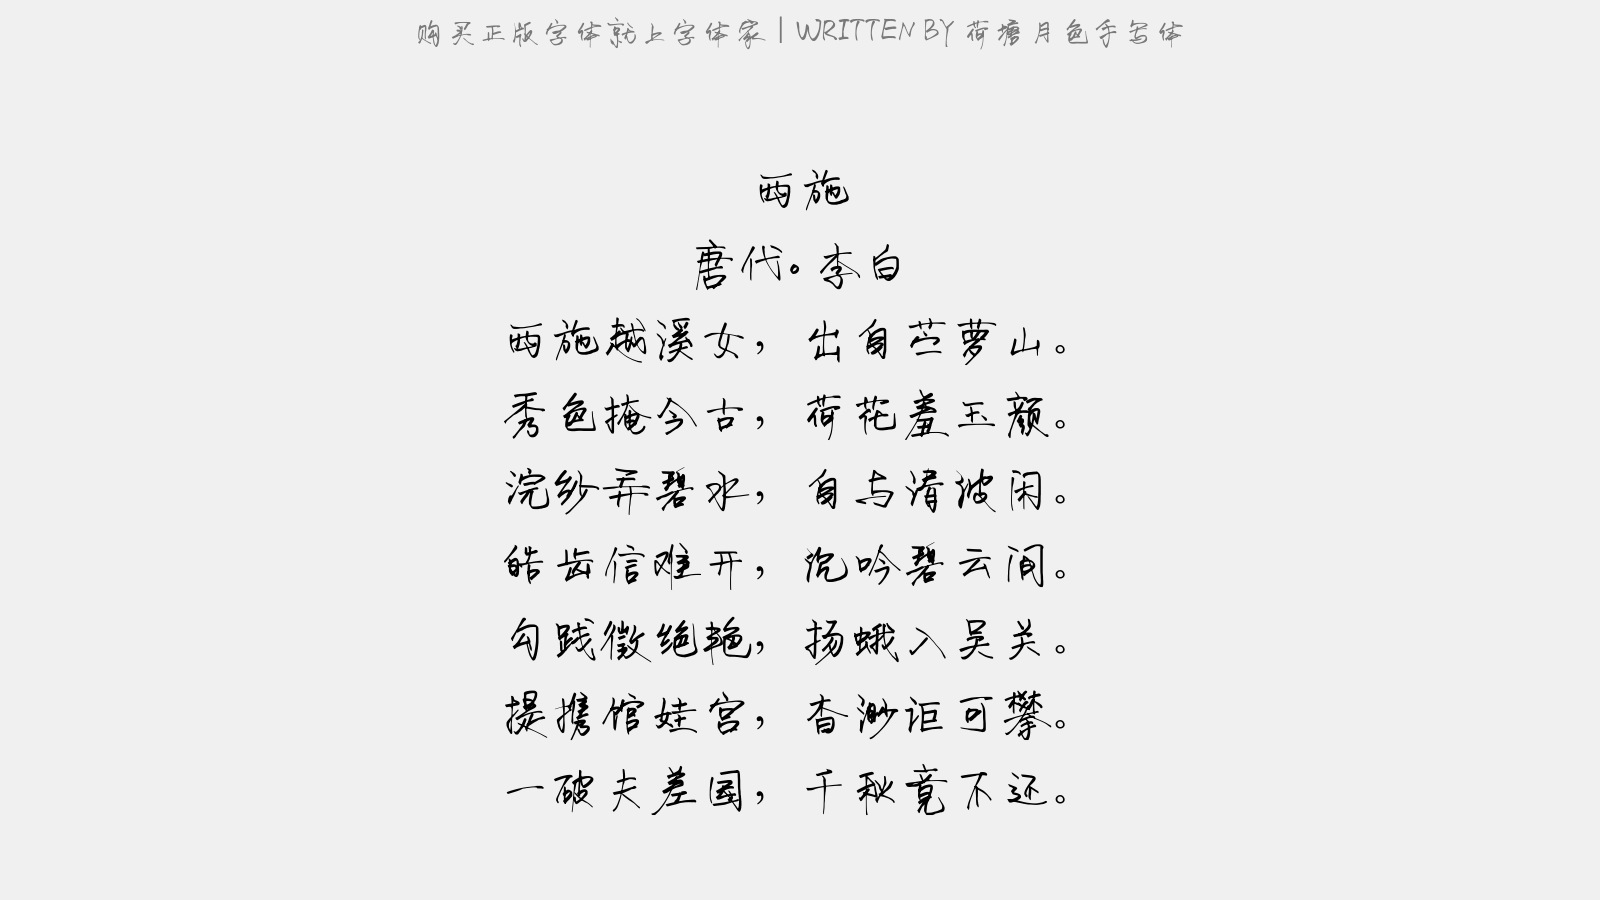 购买正版字体就上字体家 | WRITTEN BY 荷塘月色手写体
西施
唐代。李白
西施越溪女，出自苎萝山。
秀色掩今古，荷花羞玉颜。
浣纱弄碧水，自与清波闲。
皓齿信难开，沉吟碧云间。
勾践徵绝艳，扬蛾入吴关。
提携馆娃宫，杳渺讵可攀。
一破夫差国，千秋竟不还。